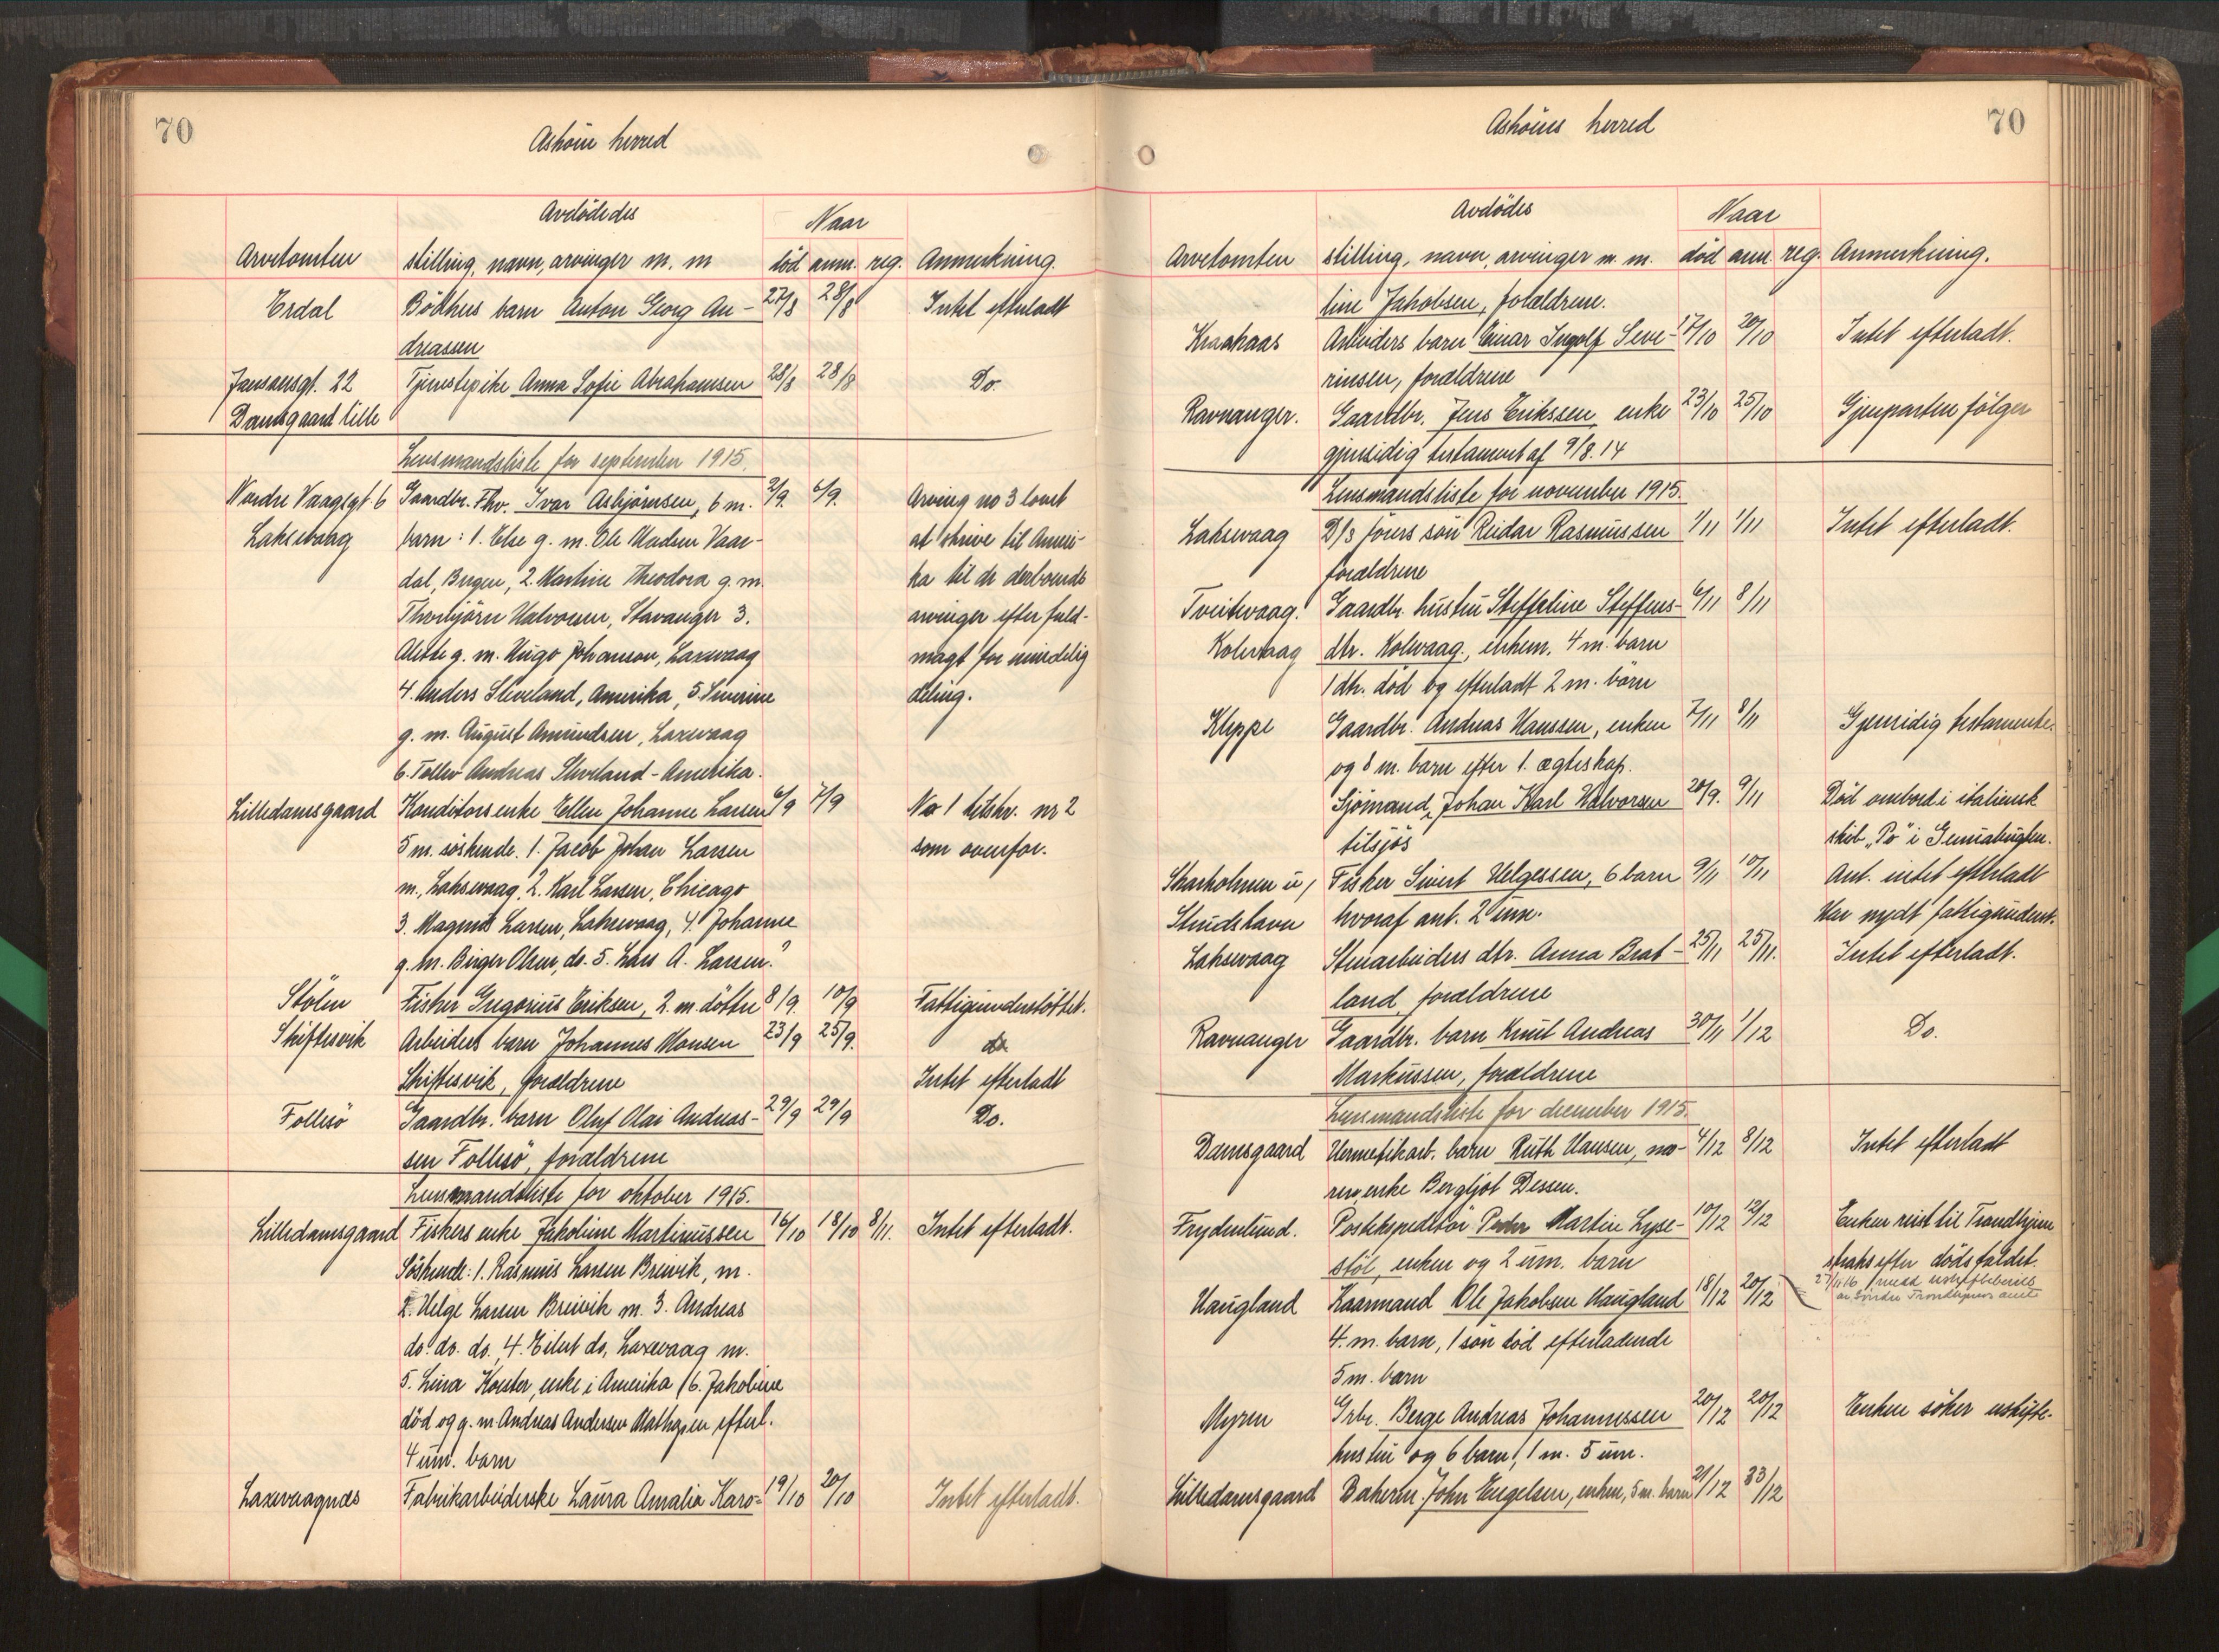 70
Askøiu herred
Arvetomten
Avdödedes
stilling, navn, arvinger m. m
Naar
död anm. reg.
Anmerkning.
Erdal Bödkers barn Anton Georg An- 27/8 28/8 Intet efterladt
dreassen
Jansonsgt. 22 Tjenestepike Anna Sofie Abrahamsen 28/8 28/8 Do
Damsgaard lille
Lensmandsliste for september 1915.
Nordre Vaagsgt 6 Gaardbr. Fhv. Ivar Asbjörnsen, 6 m. 2/9. 6/9. Arving no 3 lovet
Laksevaag barn: 1. Else g. m. Ole Madsen Vaar- at skrive til Ameri-
dal, Bergen, 2. Martine Theodora g m. ka til de derboende
Thorbjörn Halvorsen, Stavanger 3. arvinger efter fuld-
Alette g. m. Hugo Johanson, Laxevaag magt for mindelig
4. Anders Steveland, Amerika, 5. Severine deling.
g. m. August Amundsen, Laxevaag
6. Tollev Andreas Steveland - Amerika.
Lilledamsgaard Konditors enke Ellen Johanne Larsen 6/9 7/9 No 1 tilskr. nr 2
5 m. söskende. 1. Jacob Johan Larsen som ovenfor.
m., Laksevaag, 2. Karl Larsen, Chicago
3. Magnus Larsen, Laksevaag, 4. Johanne
g. m. Birger Olsen, do. 5. Lars A. Larsen?
Stölen Fisker Gregorius Eriksen, 2 m. döttre 8/9. 10/9 Fattigunderstöttet.
Skiftesvik Arbeiders barn Johannes Monsen 23/9 25/9. do
Skiftesvik, forældrene Intet efterladt
Follesö Gaardbr. barn Oluf Olai Andreas- 29/9 29/9 Do.
sen Follesö, forældrene
Lensmandsliste for oktober 1915.
Lilledamsgaard Fiskers enke Jakobine Martinussen 16/10 18/10 8/11. Intet efterladt.
Söskende: 1. Rasmus Larsen Breivik, m.
2. Helge Larsen Breivik m. 3. Andreas
do. do. do., 4. Eilert do, Laxevaag m.
5. Lina Koester, enke i Amerika, 6. Jakobine
död og g. m. Andreas Andersen Mathopen efterl.
4 um. barn
Laxevaagnæs Fabrikarbeiderske Laura Amalia Karo- 19/10 20/10 Intet efterladt.
70
Askøius herred
Arvetomten
Avdödes
stilling, navn, arvinger m. m.
Naar
död anm reg.
Anmerkning.
line Jakobsen, forældrene.
Kraakaas Arbeiders barn Einar Ingolf Seve- 17/10 20/10 Intet efterladt.
rinsen, forældrene
Ravnanger. Gaardbr. Jens Erikssen, enke 23/10 25/10 Gjenparten fölger
gjensidig testament af 9/8.14
Lensmandsliste for november 1915.
Laksevaag D/s förers sön Reidar Rasmussen 1/11 1/11 Intet efterladt.
forældrene
Tveitevaag. Gaardbr. hustru Steffeline Steffens- 6/11 8/11
Kolevaag dtr. Kolevaag, enkem. 4 m. barn
1 dtr. död og efterladt 2 m. börn
Kleppe Gaardbr. Andreas Hanssen, enken 7/11 8/11 Gjensidig testamente.
og 8 m. barn efter 1. ægteskap.
Sjömand Johan Karl Halvorsen 20/9. 9/11 Död ombord i italiensk
tilsjös skib "Po" i Genuabugten.
Skarholmen u/ Fisker Sivert Helgessen, 6 barn 9/11 10/11 Ant. intet efterladt
Strudshavn hvoraf ant. 2 um. Har nydt fattigunderst.
Laksevaag Stenarbeiders dtr. Anna Brat- 25/11 25/11. Intet efterladt.
land, forældrene
Ravnanger Gaardbr. barn Knut Andreas 30/11 1/12 Do.
Markussen, forældrene
Lensmandsliste for december 1915.
Damsgaard Hermetikarb. barn Ruth Hansen, mo- 4/12 8/12 Intet efterladt
ren, enke Bergljot Dessen.
Frydenlund. Postekspeditör Peder Martin Lyse- 10/12 12/12 Enken reist til Trondhjem
stöl, enken og 2 um. barn straks efter dödsfaldet.
27/1 16 meld. uskiftebevill.
av Söndre Trondhjems amt
Haugland Kaarmand Ole Jakobsen Haugland 18/12 20/12
4. m. barn, 1 sön död efterladende
5 m. barn
Myren Grbr. Berge Andreas Johannessen 20/12 20/12 Enken söker uskifte.
hustru og 6 barn, 1 m. 5 um.
Lilledamsgaard Bakerm. John Engelsen, enken, 5 m. barn 21/12 23/12